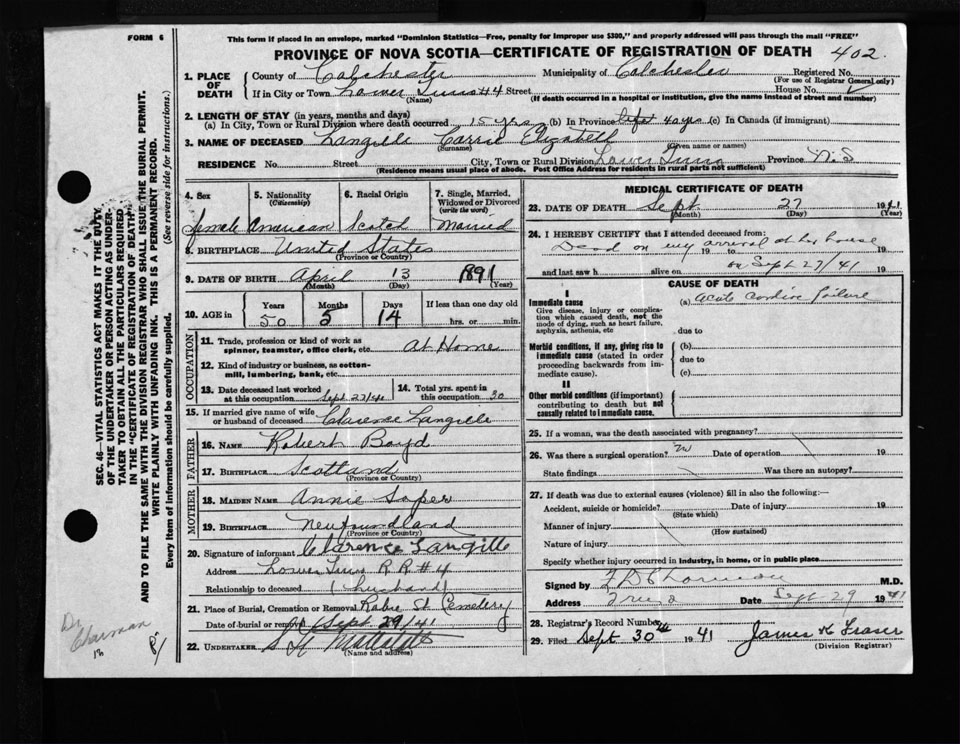 FORM 6
This form if placed in an envelope, marked "Dominion Statistics—Free, penalty for improper use $300," and properly addressed will pass through the mail "FREE"
PROVINCE OF NOVA SCOTIA—CERTIFICATE OF REGISTRATION OF DEATH 402
1. PLACE OF DEATH County of Colchester Municipality of Colchester Registered No.
(For use of Registrar General only)
If in City or Town Lower Truro #4 Street House No.
(Name) (If death occurred in a hospital or institution, give the name instead of street and number)
2. LENGTH OF STAY (in years, months and days)
(a) In City, Town or Rural Division where death occurred 15 yrs (b) In Province 40 yrs (c) In Canada (if immigrant)
3. NAME OF DECEASED Langille Carrie Elizabeth
(Surname) (Given name or names)
RESIDENCE No. Street City, Town or Rural Division Lower Truro Province N.S
(Residence means usual place of abode. Post Office Address for residents in rural parts not sufficient)
4. Sex female
5. Nationality (Citizenship) American
6. Racial Origin Scotch
7. Single, Married, Widowed or Divorced (write the word) Married
8. BIRTHPLACE United States
(Province or Country)
9. DATE OF BIRTH April 13 1891
(Month) (Day) (Year)
10. AGE in Years Months Days If less than one day old
50 5 14 hrs. or min.
OCCUPATION
11. Trade, profession or kind of work as spinner, teamster, office clerk, etc. at Home
12. Kind of industry or business, as cotton-mill, lumbering, bank, etc.
13. Date deceased last worked at this occupation Sept 27/41
14. Total yrs. spent in this occupation 30
15. If married give name of wife or husband of deceased Clarence Langille
FATHER
16. NAME Robert Boyd
17. BIRTHPLACE Scotland
(Province or Country)
MOTHER
18. MAIDEN NAME Annie Soper
19. BIRTHPLACE Newfoundland
(Province or Country)
20. Signature of informant Clarence Langille
Address Lower Truro R R #4
Relationship to deceased (husband)
21. Place of Burial, Cremation or Removal Robie St. Cemetery
Date of burial or removal Sept 29/41
22. UNDERTAKER
(Name and address)
MEDICAL CERTIFICATE OF DEATH
23. DATE OF DEATH Sept. 27 1941
(Month) (Day) (Year)
24. I HEREBY CERTIFY that I attended deceased from:
Dead on my arrival at her house
19 to 19
and last saw h alive on on Sept 27/41 19
CAUSE OF DEATH
I
Immediate cause
Give disease, injury or complication which caused death, not the mode of dying, such as heart failure, asphyxia, asthenia, etc
(a) acute cardiac failure
due to
Morbid conditions, if any, giving rise to immediate cause (stated in order proceeding backwards from immediate cause).
(b)
due to
(c)
II
Other morbid conditions (if important) contributing to death but not causally related to immediate cause.
25. If a woman, was the death associated with pregnancy?
26. Was there a surgical operation? no Date of operation 19
State findings Was there an autopsy?
27. If death was due to external causes (violence) fill in also the following:—
Accident, suicide or homicide? Date of injury 19
(State which)
Manner of injury
(How sustained)
Nature of injury
Specify whether injury occurred in industry, in home, or in public place
Signed by M.D.
Address Truro Date Sept-29 1941
28. Registrar's Record Number
29. Filed Sept 30th 1941 James K Fraser
(Division Registrar)
SEC. 46—VITAL STATISTICS ACT MAKES IT THE DUTY
OF THE UNDERTAKER OR PERSON ACTING AS UNDER-
TAKER TO OBTAIN ALL THE PARTICULARS REQUIRED
IN THE "CERTIFICATE OF REGISTRATION OF DEATH"
AND TO FILE THE SAME WITH THE DIVISION REGISTRAR WHO SHALL ISSUE THE BURIAL PERMIT.
WRITE PLAINLY WITH UNFADING INK. THIS IS A PERMANENT RECORD.
Every item of information should be carefully supplied. (See reverse side for instructions.)
Dr. Charman